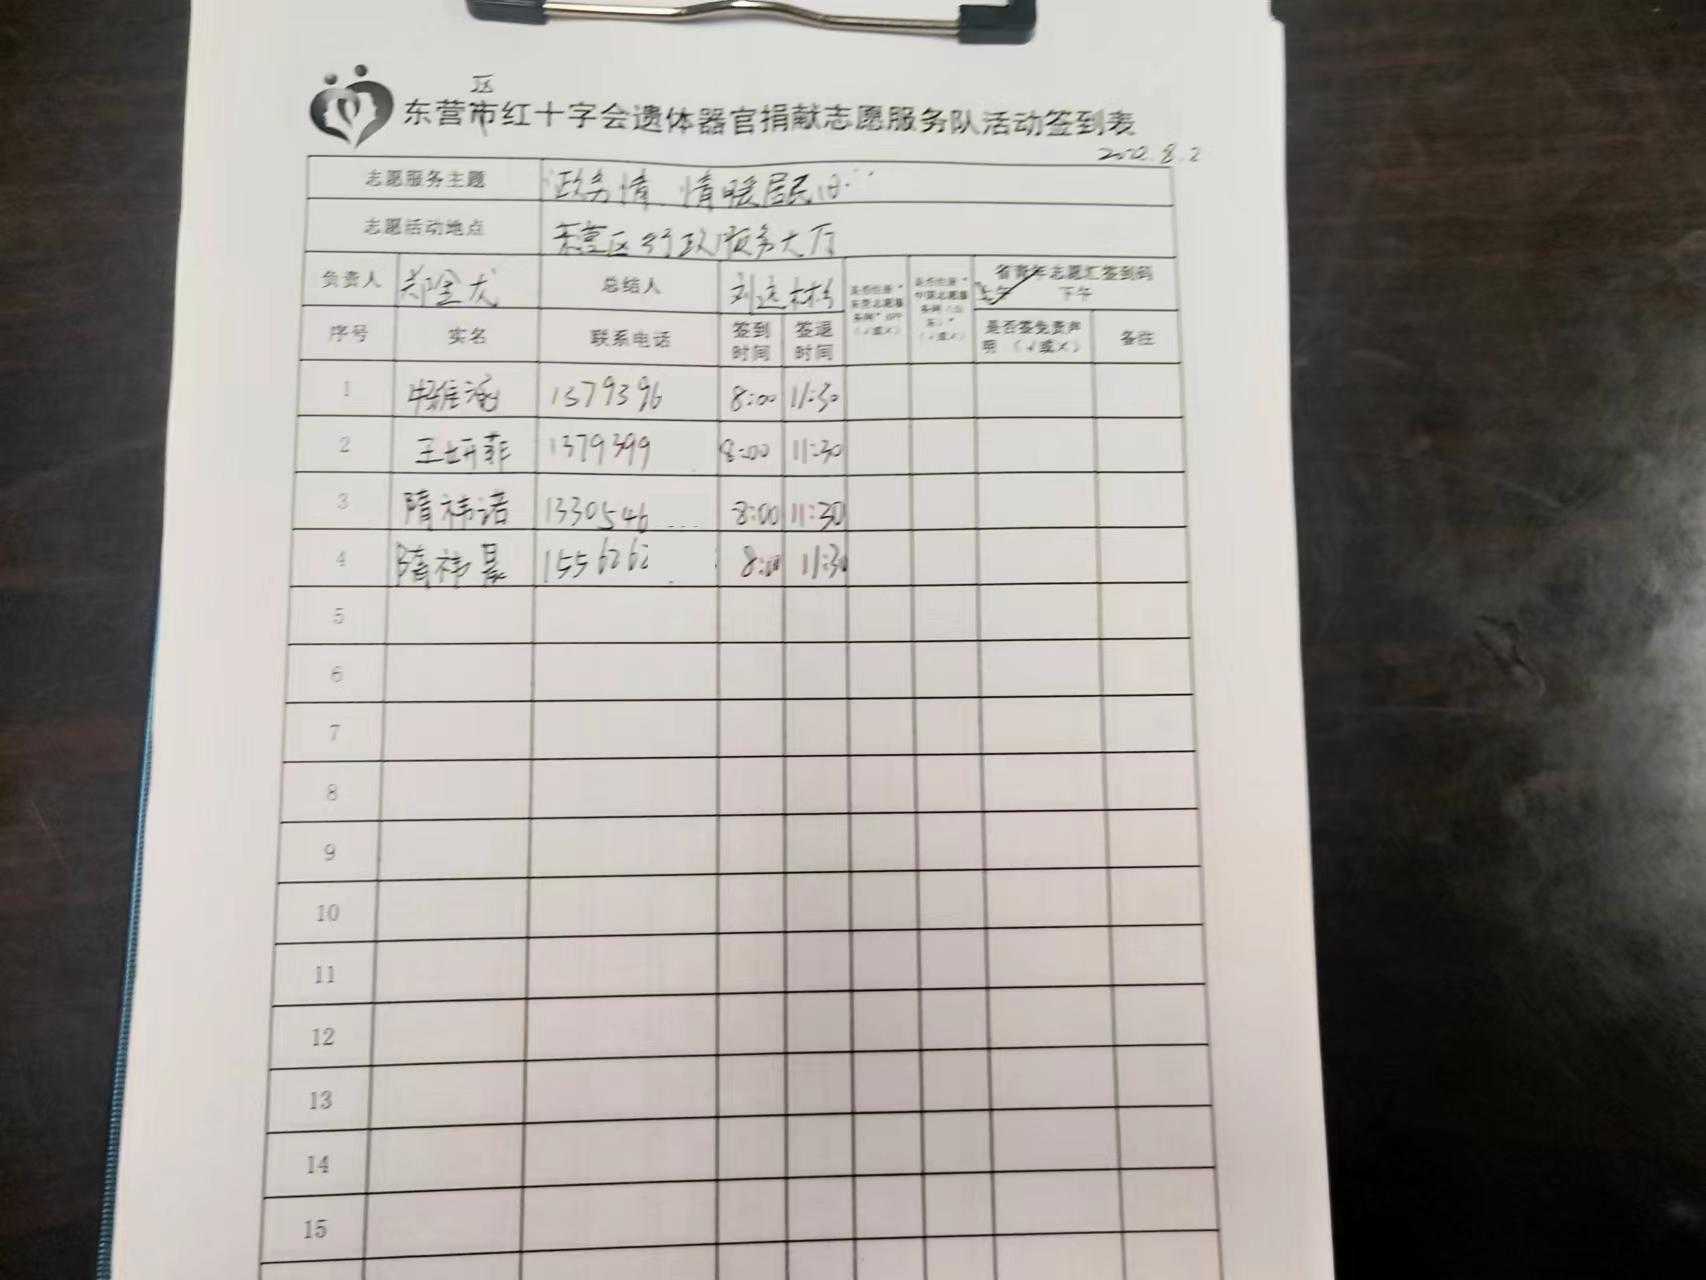 区
东营市红十字会遗体器官捐献志愿服务队活动签到表
志愿服务主题 政务情、情暖居民心
志愿活动地点 东营区行政服务大厅
负责人 郑金龙 总结人 省青年志愿汇签到码
上午 下午
序号 实名 联系电话 签到时间 签退时间 是否签免责声明（√或×） 备注
1 雅涵 1379396 8:00 11:30
2 王妍菲 1379399 8:00 11:30
3 隋祎诺 1330546 8:00 11:30
4 隋祎晨 1556262 8:00 11:30
5
6
7
8
9
10
11
12
13
14
15